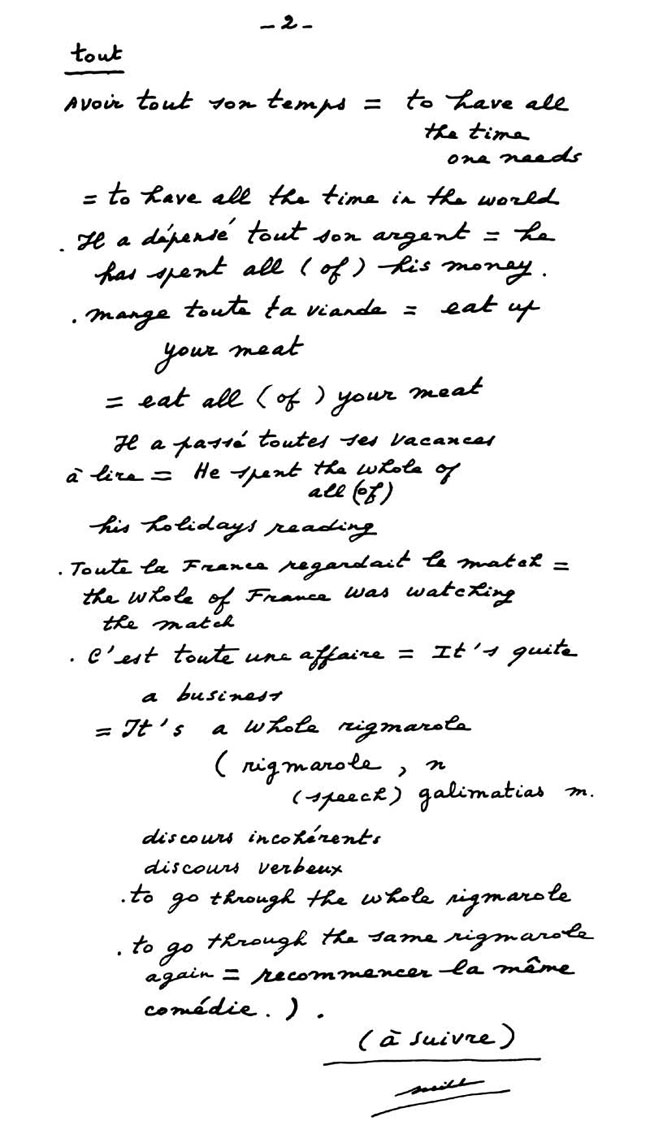 - 2 -
tout
Avoir tout son temps = to have all
the time
one needs
= to have all the time in the world
. Il a dépensé tout son argent = he
has spent all (of) his money.
. mange toute ta viande = eat up
your meat
= eat all (of) your meat
Il a passé toutes ses vacances
à lire = He spent the whole of
all (of)
his holidays reading
. Toute la France regardait le match =
the whole of France was watching
the match
. C'est toute une affaire = It's quite
a business
= It's a whole rigmarole
(rigmarole, n
(speech) galimatias m.
discours incohérents
discours verbeux
. to go through the whole rigmarole
. to go through the same rigmarole
again = recommencer la même
comédie.).
(à suivre)